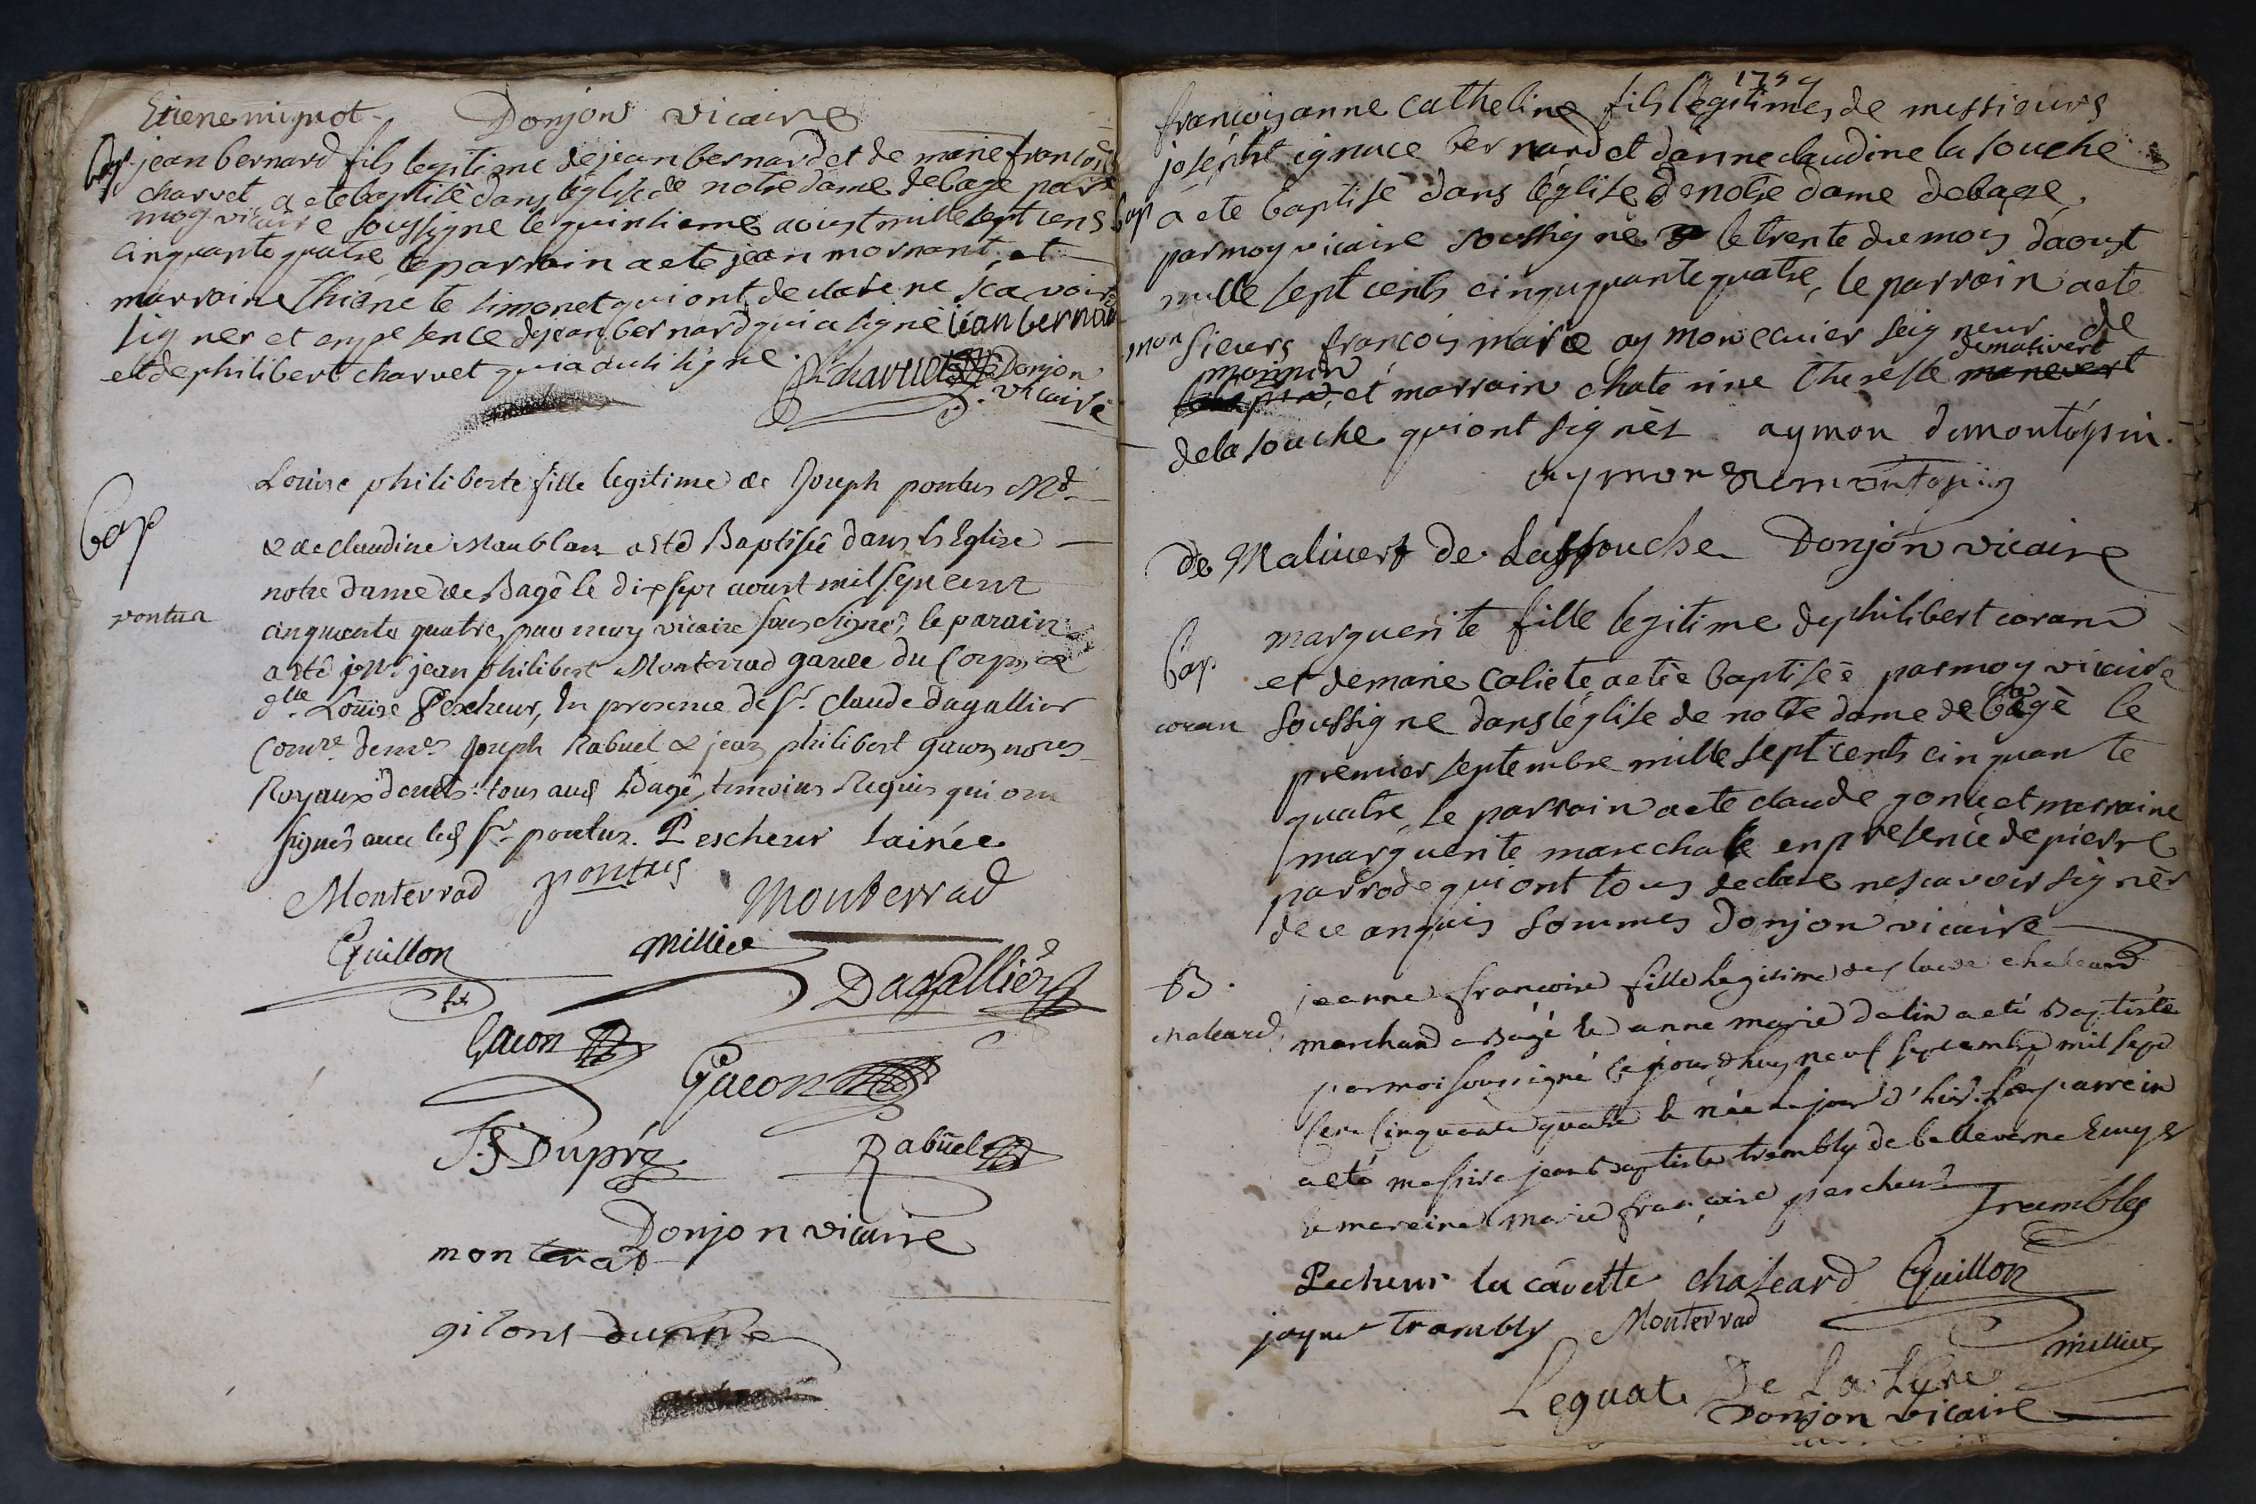 Etiene mignot Donjon vicaire
Bap jean bernard fils legitime de jean bernard et de marie françoise
charvet a ete baptisè dans léglise de notre dame de bage par
moy vicaire soussigne le quinzieme aoust mille sept cens
cinquante quatre, le parrain a ete jean mornant, et
marraine Thiene te simonet qui ont declare ne scavoir
signer et en presence de jean bernard qui a signe jean bernard
et de philibert charvet qui a aussi signe.
charvet Donjon
vicaire
Bap
pontus
Louise philiberte fille legitime de Joseph pontus Md
& de claudine Maublanc a eté Baptisée dans l'Eglise
notre dame de Bagé le dix sept aoust mil sept cent
cinquante quatre, par moy vicaire sous signé, le parain
a eté jean philibert Monterrad garde du Corps &
dlle Louise Pescheur, En presence de Sr. Claude dagallier
Joseph Rabuel & jean philibert gacon nores
Royaux tous aud Bagé, temoins Requis qui ont
signés avec led Sr. pontus. Pescheur lainée
Monterrad pontus Monterrad
Guillon millier
Dagallier
Gacon
Gacon
Dupré Rabuel
Donjon vicaire
monterad
gilons dupre
1754
françois anne catheline fils legitimes de messieurs
joseph ignace bernard et danne claudine la souche
bap a ete baptisé dans léglise de notre dame de bage,
par moy vicaire soussigné le trente du mois daoust
mille sept cents cinququante quatre, le parrain a ete
mon sieurs françois marie aymon ecuier seigneur de
et marrain chaterine therese demalivert
de la souche qui ont signés aymon demontépin.
aymon de montepin
de Malivert de Lassouche Donjon vicaire
Bap
coran
marguerite fille legitime de philibert coran
et de marie caliete a eté baptiséè par moy vicaire
soussigne dans léglise de notre dame de bagè le
premier septembre mille sept cents cinquante
quatre, le parrain a ete claude gonu et marraine
marguerite marechale en presence de pierre
parrode qui ont tous declare ne scavoir signer
de ce anquis sommes Donjon vicaire
B.
chaleard
jeanne françoise fille legitime de claude chaleard
marchand a Bagé & danne marie dalin a eté Baptisée
par moi soussigné cejourdhuy neuf septembre mil sept
cent cinquante quatre & née le jour d'hier. Le parrein
a eté messire jean Baptiste trembly de belleverne Ecuyer
& mareine marie françoise pescheur Trembley
Pecheur la cadette chaleard Guillon
trambly Monterrad
millier
Leguat De La Lyre
Donjon vicaire